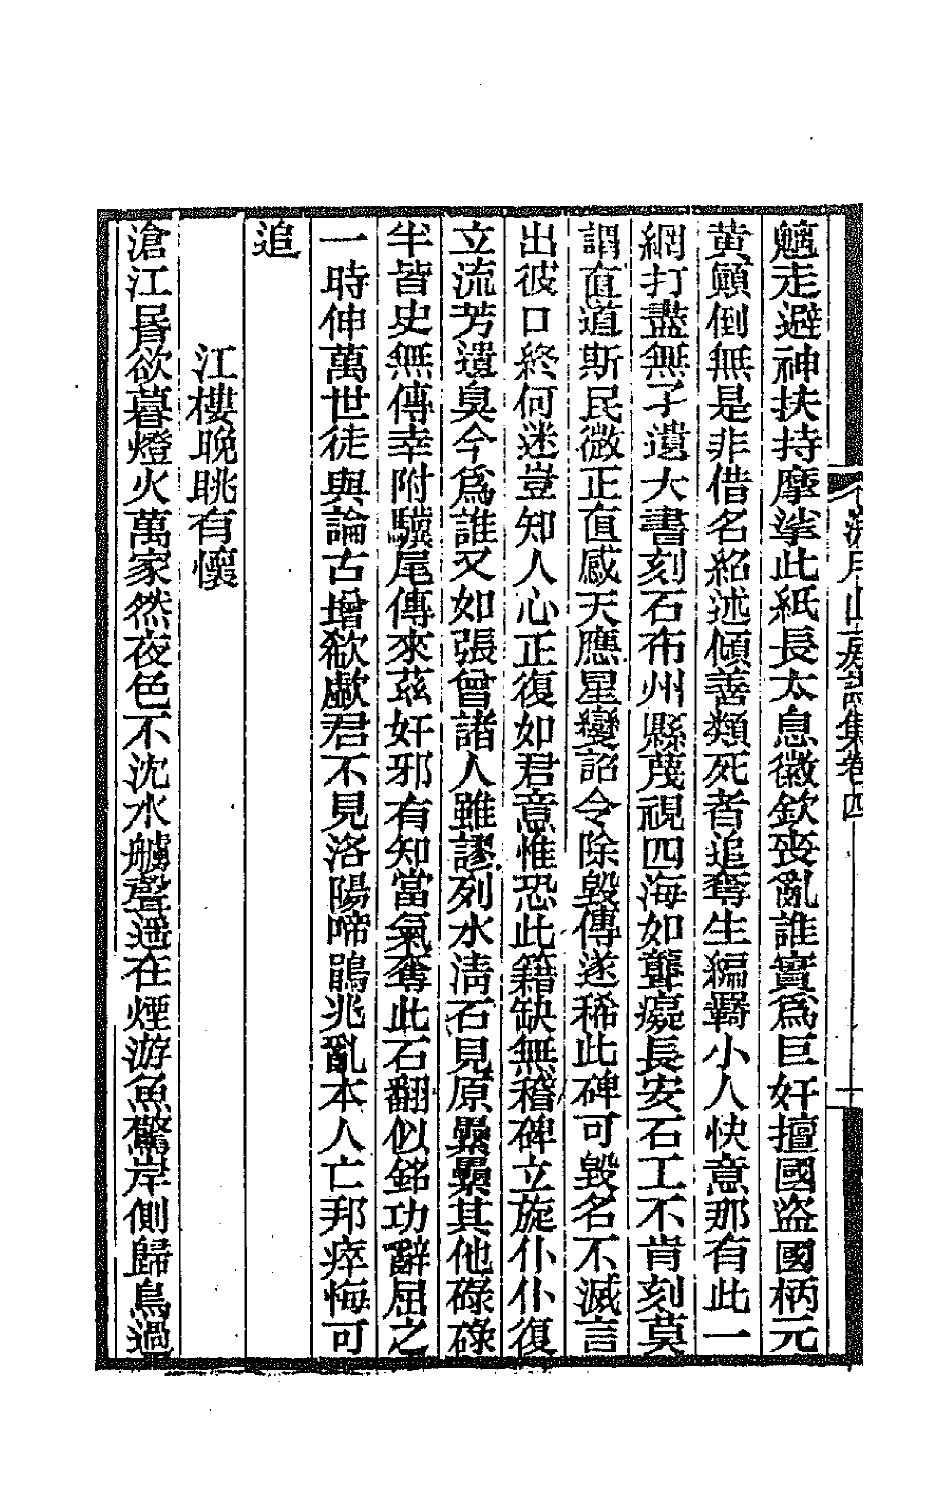 魑走避神扶持摩挲此紙長太息徽欽喪亂誰實爲巨奸擅國盜國柄元
黃顚倒無是非借名紹述傾善類死者追奪生編羈小人快意那有此一
網打盡無孑遺大書刻石布州縣茂視四海如聾癡長安石工不肯刻莫
謂直道斯民微正直感天應星變詔令除毀傳遂稀此碑可毀名不滅言
出彼口終何迷豈知人心正復如君意惟恐此籍缺無稽碑立旋仆仆復
立流芳遺臭今爲誰又如張曾諸人雖謬列水淸石見原纍纍其他碌碌
半皆史無傳幸附驥尾傳來茲奸邪有知當氣奪此石翻似銘功辭屈之
一時伸萬世徒與論古增欷歔君不見洛陽啼鵑兆亂本人亡邦瘁悔可
追
江樓晚眺有懷
滄江昏欲暮燈火萬家然夜色不沈水艣聲遥在煙游魚驚岸側歸鳥過
山房詩集卷四